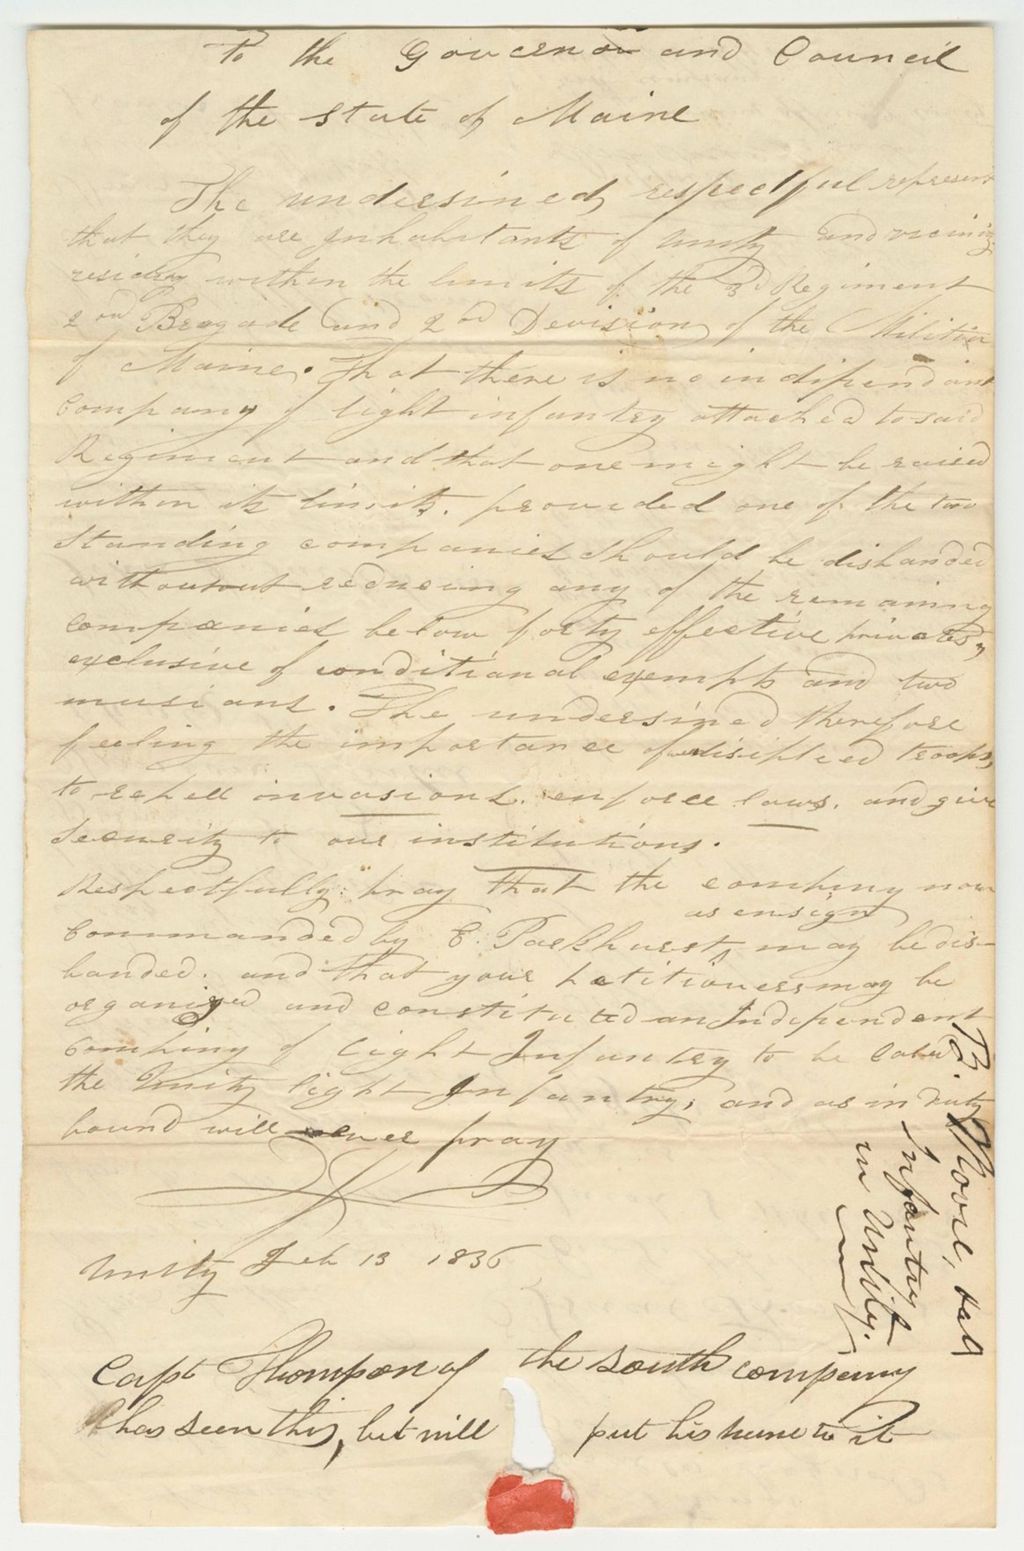 To the Governor and Council
of the state of Maine
The undersined, respectful represent
that they are Inhabitants of Unity and vicinity
residing within the limits of the 3d Regiment
2nd Bregade and 2nd Devision of the Militia
of Maine. That there is no indipendant
Company of light infantry attached to said
Regiment and that one might be raised
within its limits. provided one of the two
standing companies should be disbanded
without reducing any of the remaining
companies below forty effective privates,
exclusive of conditional exempts and two
musians. The undersined therefore
feeling the importance of disiplied troops,
to repell invasions. enforce laws. and give
security to our institutions.
Respectfully: pray that the compiny now
as ensign
Commanded by E. Parkhurst, may be dis-
banded. and that your petitioners may be
organized and constituted an Independent
Compiny of Light Infantry to be called
the Unity light Infantry; and as in duty
bound will ever pray
Unity Feb 13 1836
Capt Thompson of the South compeny
has seen this, but will put his name to it
B. Moore, & als
Infantry
in Unity.